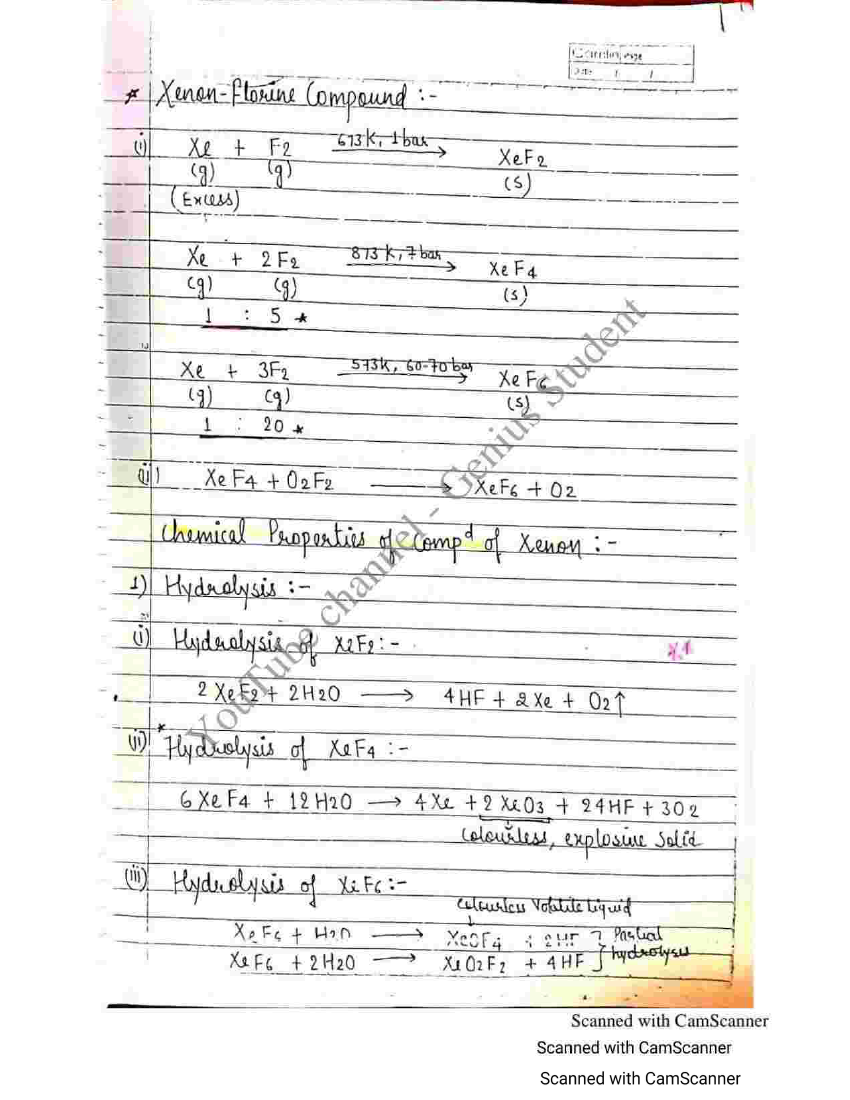 Date / /
* Xenon-Florine Compound :-
(i) Xe + F2 673K, 1 bar → XeF2
(g) (g) (s)
(Excess)
Xe + 2F2 873 K, 7 bar → XeF4
(g) (g) (s)
1 : 5 *
Xe + 3F2 573K, 60-70 bar → XeF6
(g) (g) (s)
1 : 20 *
(ii) XeF4 + O2F2 → XeF6 + O2
Chemical Properties of Compd of Xenon :-
1) Hydrolysis :-
(i) Hydrolysis of X2F2 :-
2 XeF2 + 2H2O → 4HF + 2Xe + O2↑
(ii) *Hydrolysis of XeF4 :-
6XeF4 + 12H2O → 4Xe + 2XeO3 + 24HF + 3O2
Colourless, explosive solid
(iii) Hydrolysis of XeF6 :-
Colourless Volatile Liquid
XeF6 + H2O → XeOF4 + 2HF } Partial
XeF6 + 2H2O → XeO2F2 + 4HF } hydrolysis
YouTube channel - Genius Student
Scanned with CamScanner
Scanned with CamScanner
Scanned with CamScanner